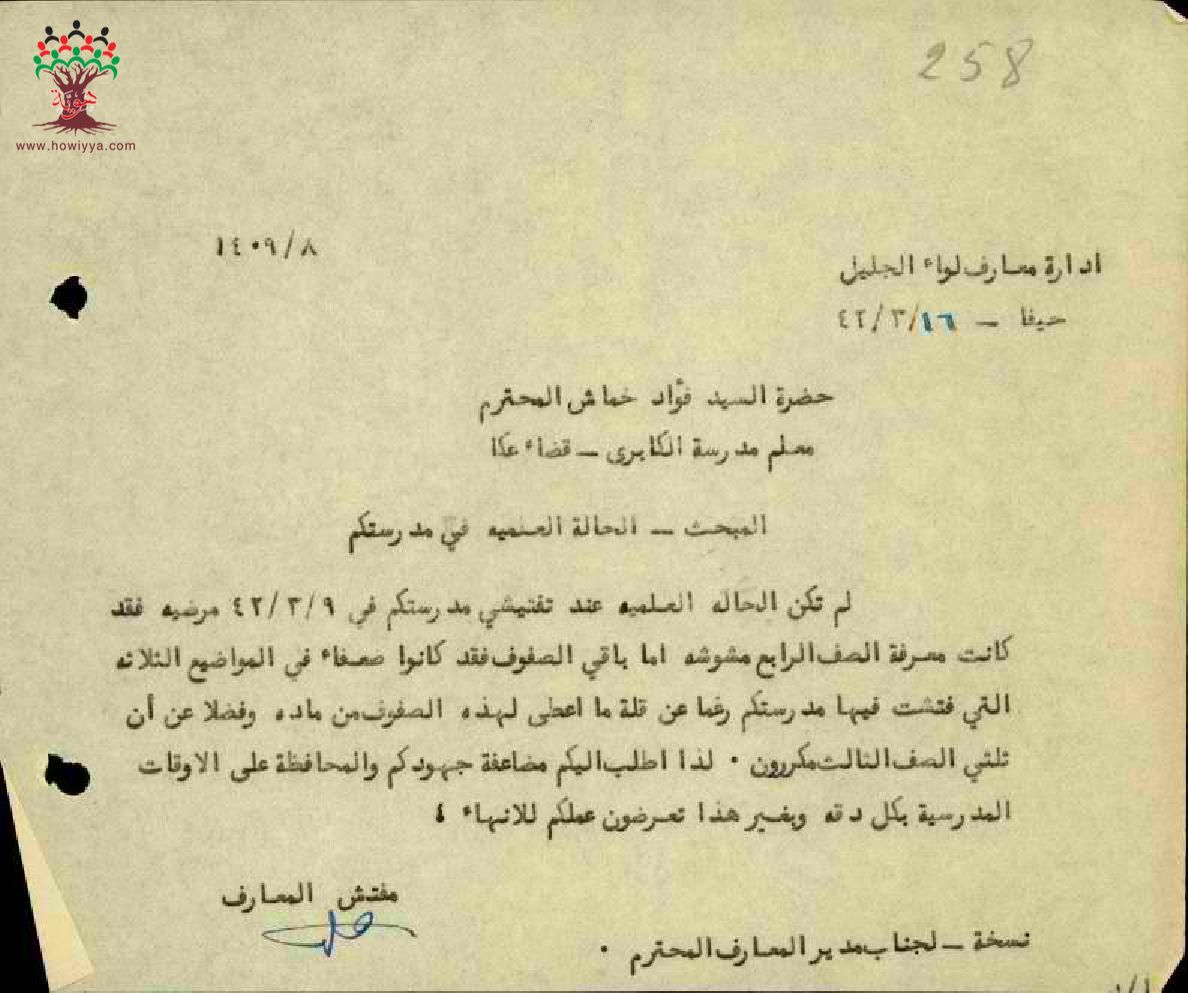 258
هوية
www.howiyya.com
١٤٠٩/٨
ادارة معارف لواء الجليل
حيفا — ١٦/٣/٤٢
حضرة السيد فؤاد خماش المحترم
معلم مدرسة الكابرى — قضاء عكا
المبحث — الحالة العلميه في مدرستكم
لم تكن الحاله العلميه عند تفتيشي مدرستكم في ٤٢/٣/٩ مرضيه فقد
كانت معرفة الصف الرابع مشوشه اما باقي الصفوف فقد كانوا ضعفاء في المواضيع الثلاثه
التي فتشت فيها مدرستكم رغما عن قلة ما اعطى لهذه الصفوف من ماده وفضلا عن أن
ثلثي الصف الثالث مكررون . لذا اطلب اليكم مضاعفة جهودكم والمحافظة على الاوقات
المدرسية بكل دقه وبغير هذا تعرضون عملكم للانهاء ؛
مفتش المعارف
نسخة — لجناب مدير المعارف المحترم .